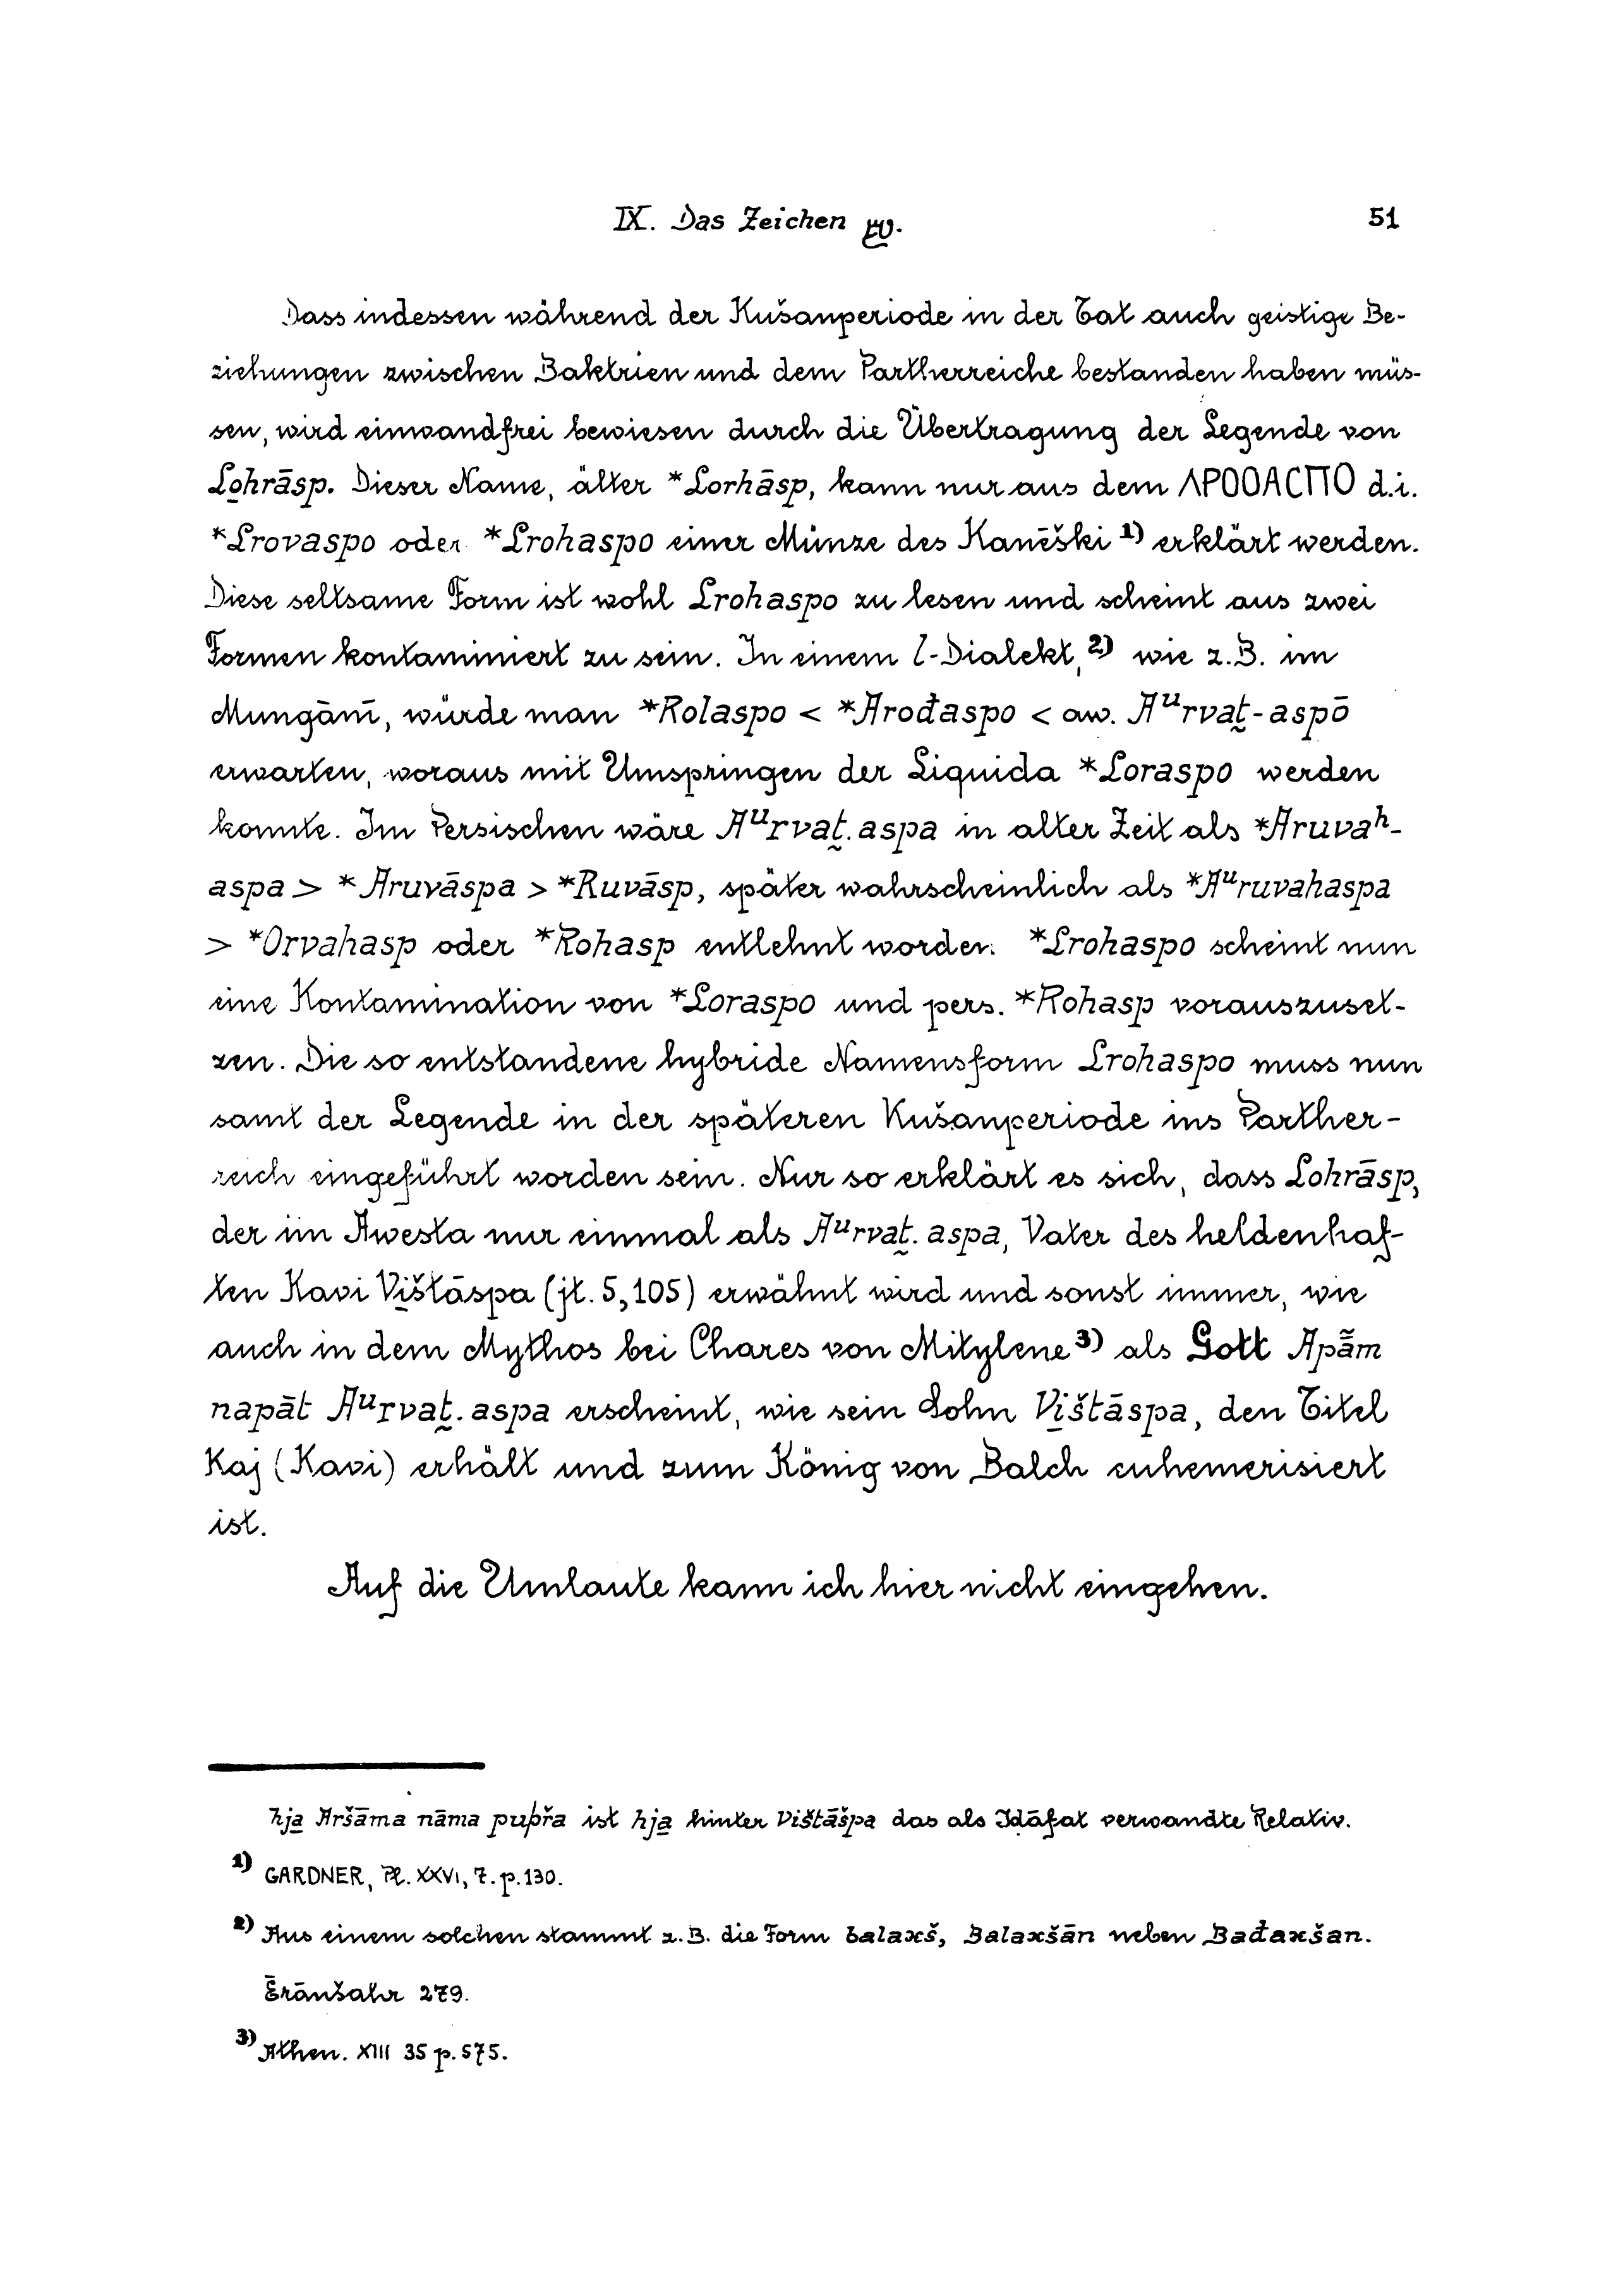 IX. Das Zeichen 𐭥. 51
Dass indessen während der Kušanperiode in der Tat auch geistige Be-
ziehungen zwischen Baktrien und dem Partherreiche bestanden haben müs-
sen, wird einwandfrei bewiesen durch die Übertragung der Legende von
Lo̲hrāsp. Dieser Name, älter *Lorhāsp, kann nur aus dem ΛΡΟΟΑCΠΟ d.i.
*Lrovaspo oder *Lrohaspo einer Münze des Kanēški ¹) erklärt werden.
Diese seltsame Form ist wohl Lrohaspo zu lesen und scheint aus zwei
Formen kontaminiert zu sein. In einem l-Dialekt,²) wie z.B. im
Mungānī, würde man *Rolaspo < *Arođaspo < aw. Aᵘrvat̰-aspō
erwarten, woraus mit Umspringen der Liquida *Loraspo werden
konnte. Im Persischen wäre Aᵘrvat̰.aspa in alter Zeit als *Aruvaʰ-
aspa > *Aruvāspa > *Ruvāsp, später wahrscheinlich als *Aᵘruvahaspa
> *Orvahasp oder *Rohasp entlehnt worden. *Lrohaspo scheint nun
eine Kontamination von *Loraspo und pers. *Rohasp vorauszuset-
zen. Die so entstandene hybride Namensform Lrohaspo muss nun
samt der Legende in der späteren Kušanperiode ins Parther-
reich eingeführt worden sein. Nur so erklärt es sich, dass Lohrāsp,
der im Awesta nur einmal als Aᵘrvat̰.aspa, Vater des heldenhaf-
ten Kavi Vi̲štāspa (jt. 5,105) erwähnt wird und sonst immer, wie
auch in dem Mythos bei Chares von Mitylene³) als Gott Apā̃m
napāt Aᵘrvat̰.aspa erscheint, wie sein Sohn Vi̲štāspa, den Titel
Kaj (Kavi) erhält und zum König von Balch euhemerisiert
ist.
Auf die Umlaute kann ich hier nicht eingehen.
hja̲ Aršāma nāma puþřa ist hja̲ hinter Vištāšpa das als Iḍāfat verwandte Relativ.
1) GARDNER, Pl. XXVI, 7. p.130.
2) Aus einem solchen stammt z.B. die Form balaxš, Balaxšān neben Bađaxšan.
Ērānšahr 279.
3) Athen. XIII 35 p.575.